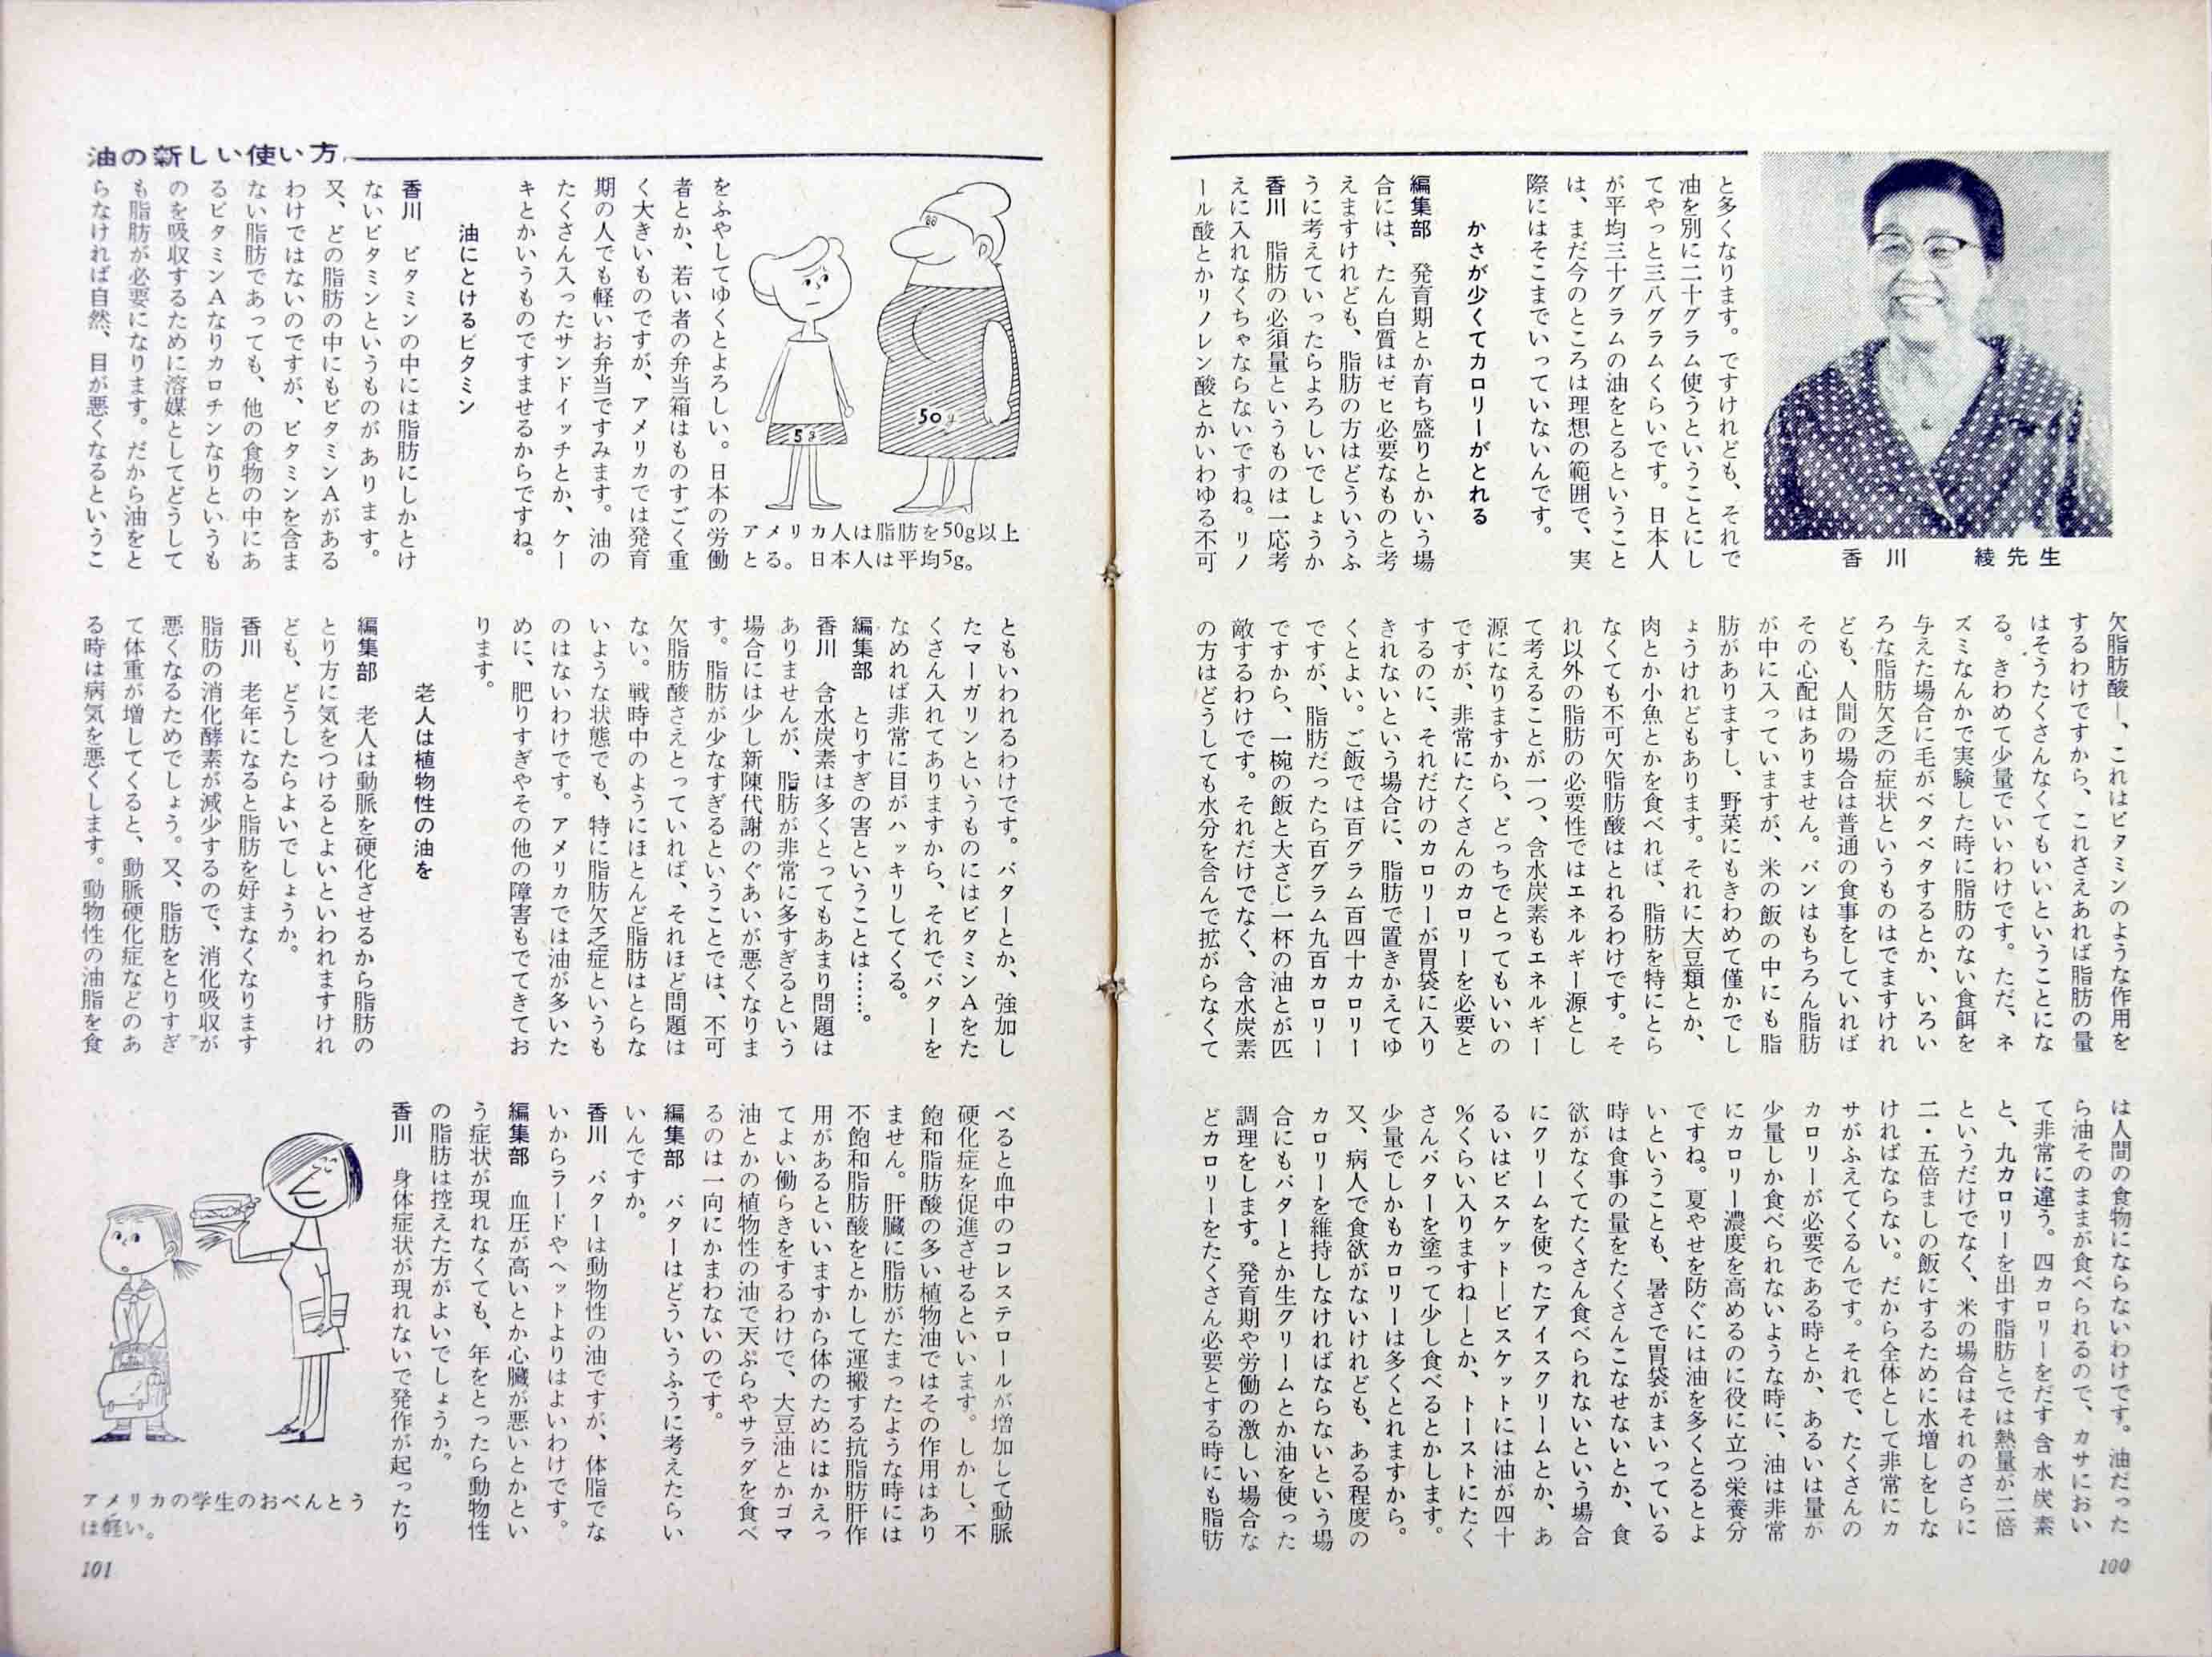 香川　綾先生
と多くなります。ですけれども、それで
油を別に二十グラム使うということにし
てやっと三八グラムくらいです。日本人
が平均三十グラムの油をとるということ
は、まだ今のところは理想の範囲で、実
際にはそこまでいっていないんです。
かさが少くてカロリーがとれる
編集部　発育期とか育ち盛りとかいう場
合には、たん白質はゼヒ必要なものと考
えますけれども、脂肪の方はどういうふ
うに考えていったらよろしいでしょうか
香川　脂肪の必須量というものは一応考
えに入れなくちゃならないですね。リノ
ール酸とかリノレン酸とかいわゆる不可
欠脂肪酸―、これはビタミンのような作用を
するわけですから、これさえあれば脂肪の量
はそうたくさんなくてもいいということにな
る。きわめて少量でいいわけです。ただ、ネ
ズミなんかで実験した時に脂肪のない食餌を
与えた場合に毛がベタベタするとか、いろい
ろな脂肪欠乏の症状というものはでますけれ
ども、人間の場合は普通の食事をしていれば
その心配はありません。パンはもちろん脂肪
が中に入っていますが、米の飯の中にも脂
肪がありますし、野菜にもきわめて僅かでし
ょうけれどもあります。それに大豆類とか、
肉とか小魚とかを食べれば、脂肪を特にとら
なくても不可欠脂肪酸はとれるわけです。そ
れ以外の脂肪の必要性ではエネルギー源とし
て考えることが一つ、含水炭素もエネルギー
源になりますから、どっちでとってもいいの
ですが、非常にたくさんのカロリーを必要と
するのに、それだけのカロリーが胃袋に入り
きれないという場合に、脂肪で置きかえてゆ
くとよい。ご飯では百グラム百四十カロリー
ですが、脂肪だったら百グラム九百カロリー
ですから、一椀の飯と大さじ一杯の油とが匹
敵するわけです。それだけでなく、含水炭素
の方はどうしても水分を含んで拡がらなくて
は人間の食物にならないわけです。油だった
ら油そのままが食べられるので、カサにおい
て非常に違う。四カロリーをだす含水炭素
と、九カロリーを出す脂肪とでは熱量が二倍
というだけでなく、米の場合はそれのさらに
二・五倍ましの飯にするために水増しをしな
ければならない。だから全体として非常にカ
サがふえてくるんです。それで、たくさんの
カロリーが必要である時とか、あるいは量が
少量しか食べられないような時に、油は非常
にカロリー濃度を高めるのに役に立つ栄養分
ですね。夏やせを防ぐには油を多くとるとよ
いということも、暑さで胃袋がまいっている
時は食事の量をたくさんこなせないとか、食
欲がなくてたくさん食べられないという場合
にクリームを使ったアイスクリームとか、あ
るいはビスケット―ビスケットには油が四十
%くらい入りますね―とか、トーストにたく
さんバターを塗って少し食べるとかします。
少量でしかもカロリーは多くとれますから。
又、病人で食欲がないけれども、ある程度の
カロリーを維持しなければならないという場
合にもバターとか生クリームとか油を使った
調理をします。発育期や労働の激しい場合な
どカロリーをたくさん必要とする時にも脂肪
100
油の新しい使い方
50g
5g
アメリカ人は脂肪を50g以上
とる。日本人は平均5g。
をふやしてゆくとよろしい。日本の労働
者とか、若い者の弁当箱はものすごく重
く大きいものですが、アメリカでは発育
期の人でも軽いお弁当ですみます。油の
たくさん入ったサンドイッチとか、ケー
キとかいうものですませるからですね。
油にとけるビタミン
香川　ビタミンの中には脂肪にしかとけ
ないビタミンというものがあります。
又、どの脂肪の中にもビタミンAがある
わけではないのですが、ビタミンを含ま
ない脂肪であっても、他の食物の中にあ
るビタミンAなりカロチンなりというも
のを吸収するために溶媒としてどうして
も脂肪が必要になります。だから油をと
らなければ自然、目が悪くなるというこ
ともいわれるわけです。バターとか、強加し
たマーガリンというものにはビタミンAをた
くさん入れてありますから、それでバターを
なめれば非常に目がハッキリしてくる。
編集部　とりすぎの害ということは……。
香川　含水炭素は多くとってもあまり問題は
ありませんが、脂肪が非常に多すぎるという
場合には少し新陳代謝のぐあいが悪くなりま
す。脂肪が少なすぎるということでは、不可
欠脂肪酸さえとっていれば、それほど問題は
ない。戦時中のようにほとんど脂肪はとらな
いような状態でも、特に脂肪欠乏症というも
のはないわけです。アメリカでは油が多いた
めに、肥りすぎやその他の障害もでてきてお
ります。
老人は植物性の油を
編集部　老人は動脈を硬化させるから脂肪の
とり方に気をつけるとよいといわれますけれ
ども、どうしたらよいでしょうか。
香川　老年になると脂肪を好まなくなります
脂肪の消化酵素が減少するので、消化吸収が
悪くなるためでしょう。又、脂肪をとりすぎ
て体重が増してくると、動脈硬化症などのあ
る時は病気を悪くします。動物性の油脂を食
べると血中のコレステロールが増加して動脈
硬化症を促進させるといいます。しかし、不
飽和脂肪酸の多い植物油ではその作用はあり
ません。肝臓に脂肪がたまったような時には
不飽和脂肪酸をとかして運搬する抗脂肪肝作
用があるといいますから体のためにはかえっ
てよい働らきをするわけで、大豆油とかゴマ
油とかの植物性の油で天ぷらやサラダを食べ
るのは一向にかまわないのです。
編集部　バターはどういうふうに考えたらい
いんですか。
香川　バターは動物性の油ですが、体脂でな
いからラードやヘットよりはよいわけです。
編集部　血圧が高いとか心臓が悪いとかとい
う症状が現れなくても、年をとったら動物性
の脂肪は控えた方がよいでしょうか。
香川　身体症状が現れないで発作が起ったり
アメリカの学生のおべんとう
は軽い。
101